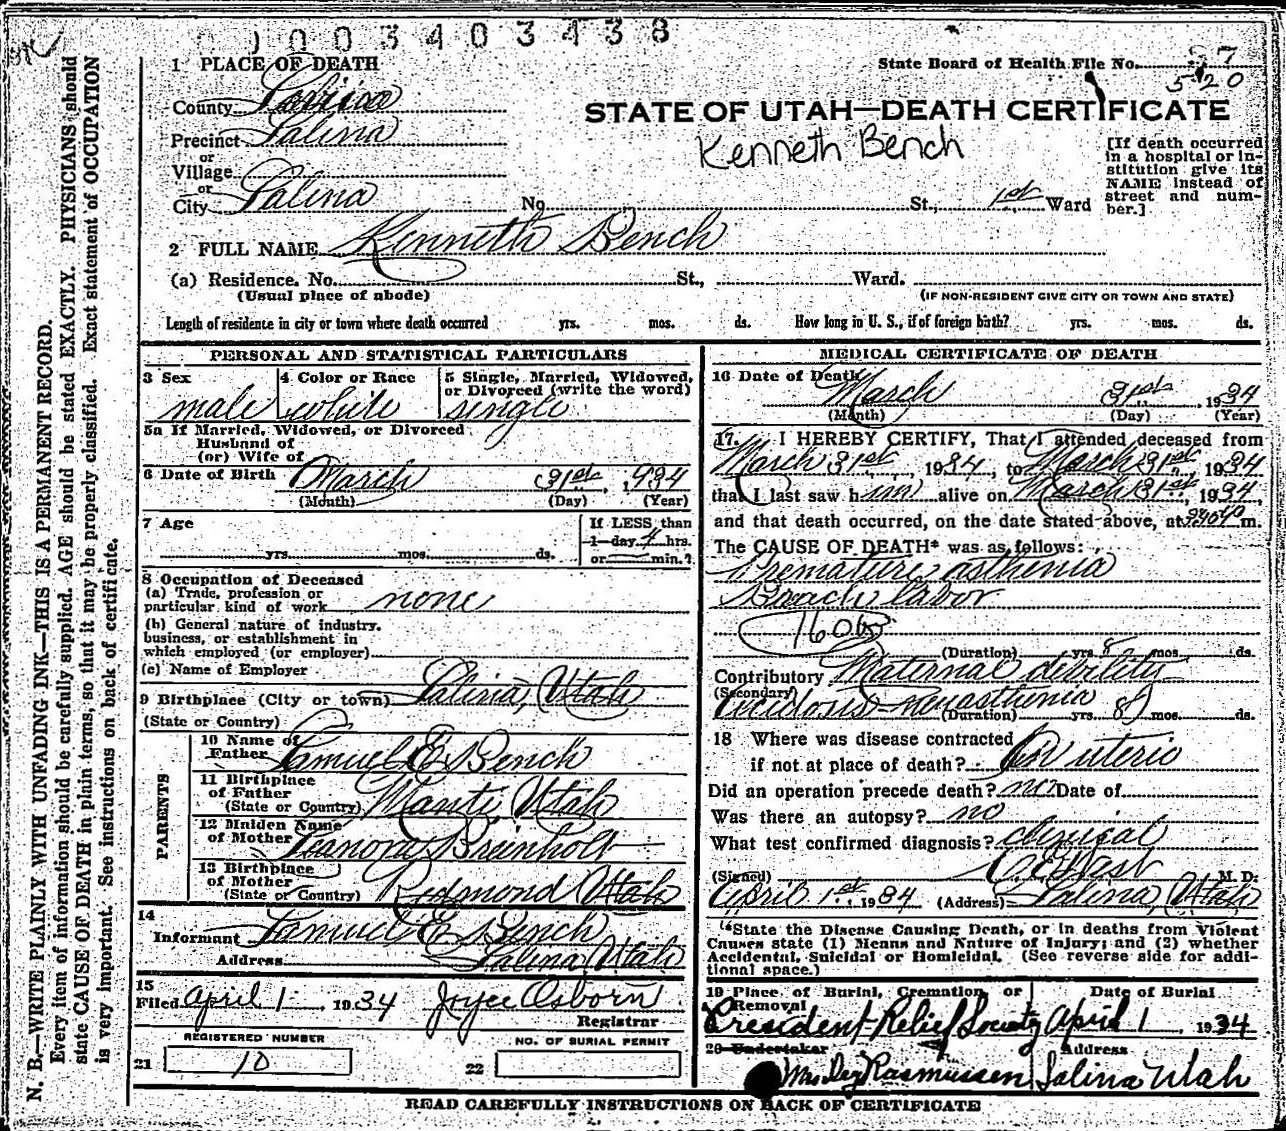 1003403438
1 PLACE OF DEATH
State Board of Health File No. 27
520
County Sevier
STATE OF UTAH—DEATH CERTIFICATE
Precinct Salina
Kenneth Bench
or
Village
or
City Salina No. St., 1st Ward
[If death occurred
in a hospital or in-
stitution give its
NAME instead of
street and num-
ber.]
2 FULL NAME Kenneth Bench
(a) Residence. No. St., Ward.
(Usual place of abode) (IF NON-RESIDENT GIVE CITY OR TOWN AND STATE)
Length of residence in city or town where death occurred yrs. mos. ds. How long in U. S., if of foreign birth? yrs. mos. ds.
PERSONAL AND STATISTICAL PARTICULARS
3 Sex male
4 Color or Race white
5 Single, Married, Widowed,
or Divorced (write the word)
single
5a If Married, Widowed, or Divorced
Husband of
(or) Wife of
6 Date of Birth March 31st, 1934
(Month) (Day) (Year)
7 Age
yrs. mos. ds.
If LESS than
1 day 4 hrs.
or min.?
8 Occupation of Deceased
(a) Trade, profession or
particular kind of work none
(b) General nature of industry.
business, or establishment in
which employed (or employer)
(c) Name of Employer
9 Birthplace (City or town) Salina, Utah
(State or Country)
PARENTS
10 Name of
Father Samuel E Bench
11 Birthplace
of Father
(State or Country) Manti Utah
12 Maiden Name
of Mother Leanora Breinholt
13 Birthplace
of Mother
(State or Country) Redmond Utah
14
Informant Samuel E Bench
Address Salina, Utah
15
Filed April 1 1934 Joyce Osborn
Registrar
REGISTERED NUMBER
21 10
NO. OF BURIAL PERMIT
22
MEDICAL CERTIFICATE OF DEATH
16 Date of Death March 31st, 1934
(Month) (Day) (Year)
17. I HEREBY CERTIFY, That I attended deceased from
March 31st, 1934, to March 31st, 1934
that I last saw him alive on March 31st, 1934,
and that death occurred, on the date stated above, at m.
The CAUSE OF DEATH* was as follows:
Premature asthenia
Breach labor
160
(Duration) yrs. 8 mos. ds.
Contributory Maternal debility
(Secondary) Acidosis
(Duration) yrs. 8 mos. ds.
18 Where was disease contracted
if not at place of death? In uterio
Did an operation precede death? no Date of
Was there an autopsy? no
What test confirmed diagnosis? clinical
(Signed) C E West M. D.
April 1st, 1934 (Address) Salina, Utah
*State the Disease Causing Death, or in deaths from Violent
Causes state (1) Means and Nature of Injury; and (2) whether
Accidental, Suicidal or Homicidal. (See reverse side for addi-
tional space.)
19 Place of Burial, Cremation, or
Removal
Date of Burial
President Relief Society April 1, 1934
20 Undertaker Address
Mrs Rasmussen Salina Utah
READ CAREFULLY INSTRUCTIONS ON BACK OF CERTIFICATE
N. B.—WRITE PLAINLY WITH UNFADING INK—THIS IS A PERMANENT RECORD.
Every item of information should be carefully supplied. AGE should be stated EXACTLY. PHYSICIANS should
state CAUSE OF DEATH in plain terms, so that it may be properly classified. Exact statement of OCCUPATION
is very important. See instructions on back of certificate.